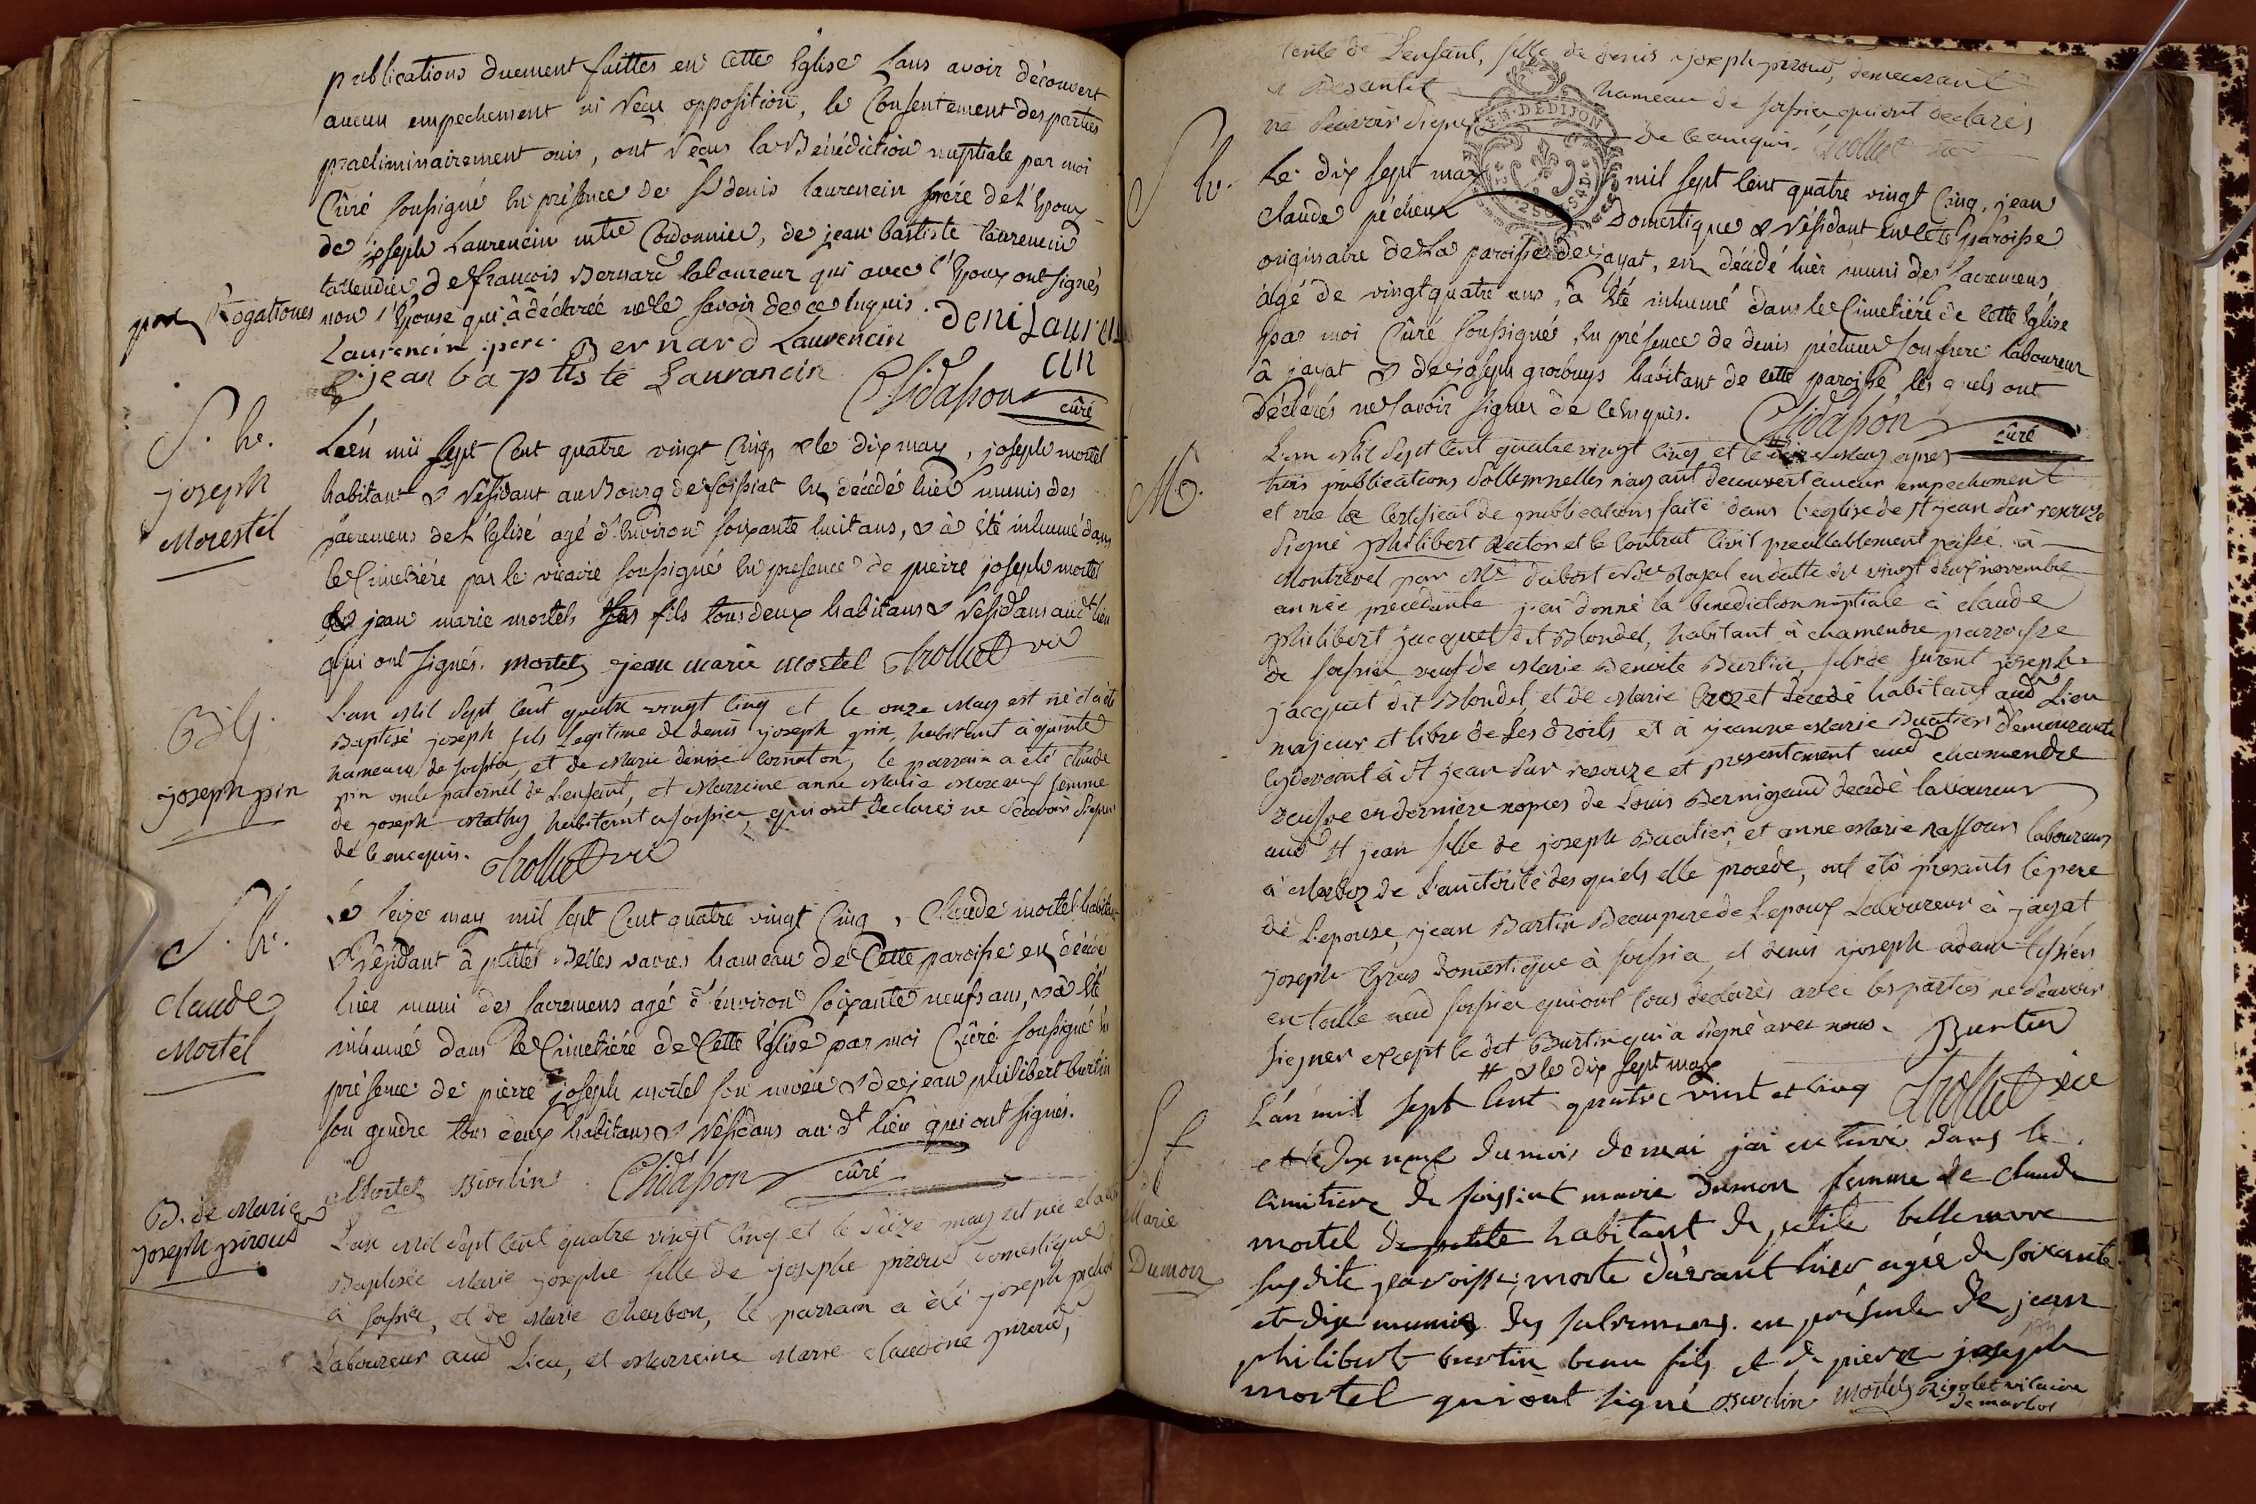 publications duement faittes en cette Eglise sans avoir découvert
aucun empechement ni reçu opposition, le Consentement des parties
praeliminairement ouis, ont reçus la Bénédiction nuptiale par moi
Curé soussigné en présence de Sr denis laurencin frére de l'Epoux
de joseph Laurencin mtre Cordonnier, de jean baptiste laurencin
de françois Bernard laboureur qui avec l'Epoux ont signés
pro Rogationes
non l'Epouse qui a déclarée ne le savoir de ce Enquis. Deni Lauren
cin
Laurencin pere. Bernard Laurencin
jean baptiste Laurancin
Chidasson curé
S. h.
joseph
Morestel
L'en mil sept Cent quatre vingt Cinq & le dix may, joseph mortel
habitant & résidant au Bourg de foissiat En décédé hier munis des
sacremens de l'Eglise agé d'Environ soixante huit ans, & a Eté inhumé dans
le Cimetiére par le vicaire soussigné En presence de pierre joseph mortel
& jean marie mortel ses fils tous deux habitans & résidans audt lieu
qui ont signés. mortel jean marie mortel Trollied vic
B. G.
joseph pin
L'an Mil Sept Cent quatre vingt Cinq et le onze May est né et a été
Baptisé joseph fils Legitime de denis joseph pin, habitant à
hameau de foissia, et de Marie denise cornaton, le parrain a été Claude
pin oncle paternel de L'enfant, et Marraine anne Marie Moreau femme
de joseph Mathy habitant a foissia, qui ont declarés ne Scavoir Signer
de ce enequis. Trollied vic
S. h.
Claude
Mortel
Le Seize may mil sept Cent quatre vingt Cinq, Claude mortel habitant
& Résidant à petites Belles vavres hameau de Cette paroisse en décédé
hier muni des sacremens agé d'environ soixante neufs ans, & a Eté
inhumé dans le Cimetiére de Cette Eglise par moi Curé soussigné En
présence de pierre joseph mortel son neveu & de jean philibert burtin
son gendre tous deux habitans & résidans au dt lieu qui ont signés.
Mortel Burtin Chidasson curé
B. de Marie
joseph piroud
L'an Mil Sept Cent quatre vingt Cinq et le Seize may est née et a été
Baptisée Marie josephe fille de josephe piroud domestique
à foissia, et de Marie Charbon, le parrain a été joseph
Laboureur aud Lieu, et Marraine Marie claudine piroud,
tente de L'enfant, fille de denis joseph piroud, demeurant
hameau de foissia qui ont declarés
ne Scavoir Signer de ce enequis. Trollied vic
S. h.
Le dix sept may mil sept Cent quatre vingt Cinq, jean
claude pécheux Domestique & résidant en cette paroisse
originaire de la paroisse de jayat, en décédé hier muni des sacremens
âgé de vingt quatre ans, a Eté inhumé dans le Cimetiére de Cette Eglise
par moi Curé soussigné En présence de denis pécheux son frere laboureur
à jayat & de joseph grosbuys habitant de cette paroisse les quels ont
Déclarés ne savoir signer de ce Enquis. Chidasson curé
M.
L'an Mil Sept Cent quatre vingt Cinq et le # apres
trois publications Sollemnelles n'ayant decouvert aucun empechement
et vu le Certificat de publications faite dans l'eglise de St jean Sur reyssouze
Signé philibert Recteur et le Contrat Civil preallablement passé à
Montrevel par Me dubost Nre Royal en datte du vingt deux novembre
année precedente j'ai donné la benediction nuptiale à claude
philibert jacquet dit Blondel, habitant à chamendre parroisse
de foissia veuf de Marie Benoite Burtin, fils de furent joseph
jacquet dit Blondel, et de Marie décedé habitants aud Lieu
majeur et libre de Ses droits et à jeanne Marie Buatier demeurante
cydevant à St jean Sur resouze et presentement aud chamendre
veufve en derniere nopces de Louis Bernigaud decedé laboureur
aud St jean fille de joseph Buatier, et anne Marie laboureurs
à Marboz de L'auctorité desquels elle procede, ont été presents le pere
de L'epouse, jean Burtin Beaupere de L'epoux Laboureur à jayat
joseph Gras domestique à foissia, et denis joseph adam tissier
en toille aud foissia qui ont tous declarés avec les parties ne Scavoir
Signer except le dit Burtin qui a signé avec nous. Burtin
# & le dix sept may
Trollied vic
S f
Marie
Dumon
L'an mil sept cent quatre vint et cinq
et le Dix neuf du mois de mai j'ai enterré dans le
cimitiere de foissiat marie dumon femme de claude
mortel habitant de petite bellevavre
susdite paroisse, morte d'avant hier agée de soixante
et dix munie des sacremens en présence de jean
philibert burtin beau fils et de pierre joseph
mortel qui ont signé Burtin Mortel Rigolet vicaire
de marbos